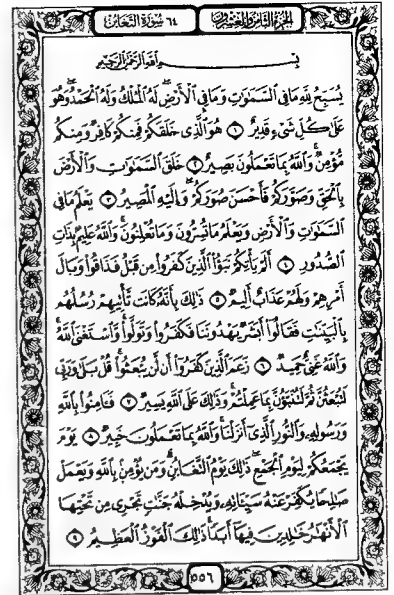 الجزء الثامن والعشرون
٦٤ سورة التغابن
بِسْمِ اللَّهِ الرَّحْمَٰنِ الرَّحِيمِ
يُسَبِّحُ لِلَّهِ مَا فِي السَّمَٰوَٰتِ وَمَا فِي الْأَرْضِ لَهُ الْمُلْكُ وَلَهُ الْحَمْدُ وَهُوَ
عَلَىٰ كُلِّ شَيْءٍ قَدِيرٌ ١ هُوَ الَّذِي خَلَقَكُمْ فَمِنكُمْ كَافِرٌ وَمِنكُم
مُّؤْمِنٌ وَاللَّهُ بِمَا تَعْمَلُونَ بَصِيرٌ ٢ خَلَقَ السَّمَٰوَٰتِ وَالْأَرْضَ
بِالْحَقِّ وَصَوَّرَكُمْ فَأَحْسَنَ صُوَرَكُمْ وَإِلَيْهِ الْمَصِيرُ ٣ يَعْلَمُ مَا فِي
السَّمَٰوَٰتِ وَالْأَرْضِ وَيَعْلَمُ مَا تُسِرُّونَ وَمَا تُعْلِنُونَ وَاللَّهُ عَلِيمٌ بِذَاتِ
الصُّدُورِ ٤ أَلَمْ يَأْتِكُمْ نَبَؤُا الَّذِينَ كَفَرُوا مِن قَبْلُ فَذَاقُوا وَبَالَ
أَمْرِهِمْ وَلَهُمْ عَذَابٌ أَلِيمٌ ٥ ذَٰلِكَ بِأَنَّهُ كَانَت تَّأْتِيهِمْ رُسُلُهُم
بِالْبَيِّنَٰتِ فَقَالُوا أَبَشَرٌ يَهْدُونَنَا فَكَفَرُوا وَتَوَلَّوا وَّاسْتَغْنَى اللَّهُ
وَاللَّهُ غَنِيٌّ حَمِيدٌ ٦ زَعَمَ الَّذِينَ كَفَرُوا أَن لَّن يُبْعَثُوا قُلْ بَلَىٰ وَرَبِّي
لَتُبْعَثُنَّ ثُمَّ لَتُنَبَّؤُنَّ بِمَا عَمِلْتُمْ وَذَٰلِكَ عَلَى اللَّهِ يَسِيرٌ ٧ فَـَٔامِنُوا بِاللَّهِ
وَرَسُولِهِ وَالنُّورِ الَّذِي أَنزَلْنَا وَاللَّهُ بِمَا تَعْمَلُونَ خَبِيرٌ ٨ يَوْمَ
يَجْمَعُكُمْ لِيَوْمِ الْجَمْعِ ذَٰلِكَ يَوْمُ التَّغَابُنِ وَمَن يُؤْمِن بِاللَّهِ وَيَعْمَلْ
صَٰلِحًا يُكَفِّرْ عَنْهُ سَيِّـَٔاتِهِ وَيُدْخِلْهُ جَنَّٰتٍ تَجْرِي مِن تَحْتِهَا
الْأَنْهَٰرُ خَٰلِدِينَ فِيهَا أَبَدًا ذَٰلِكَ الْفَوْزُ الْعَظِيمُ ٩
٥٥٦